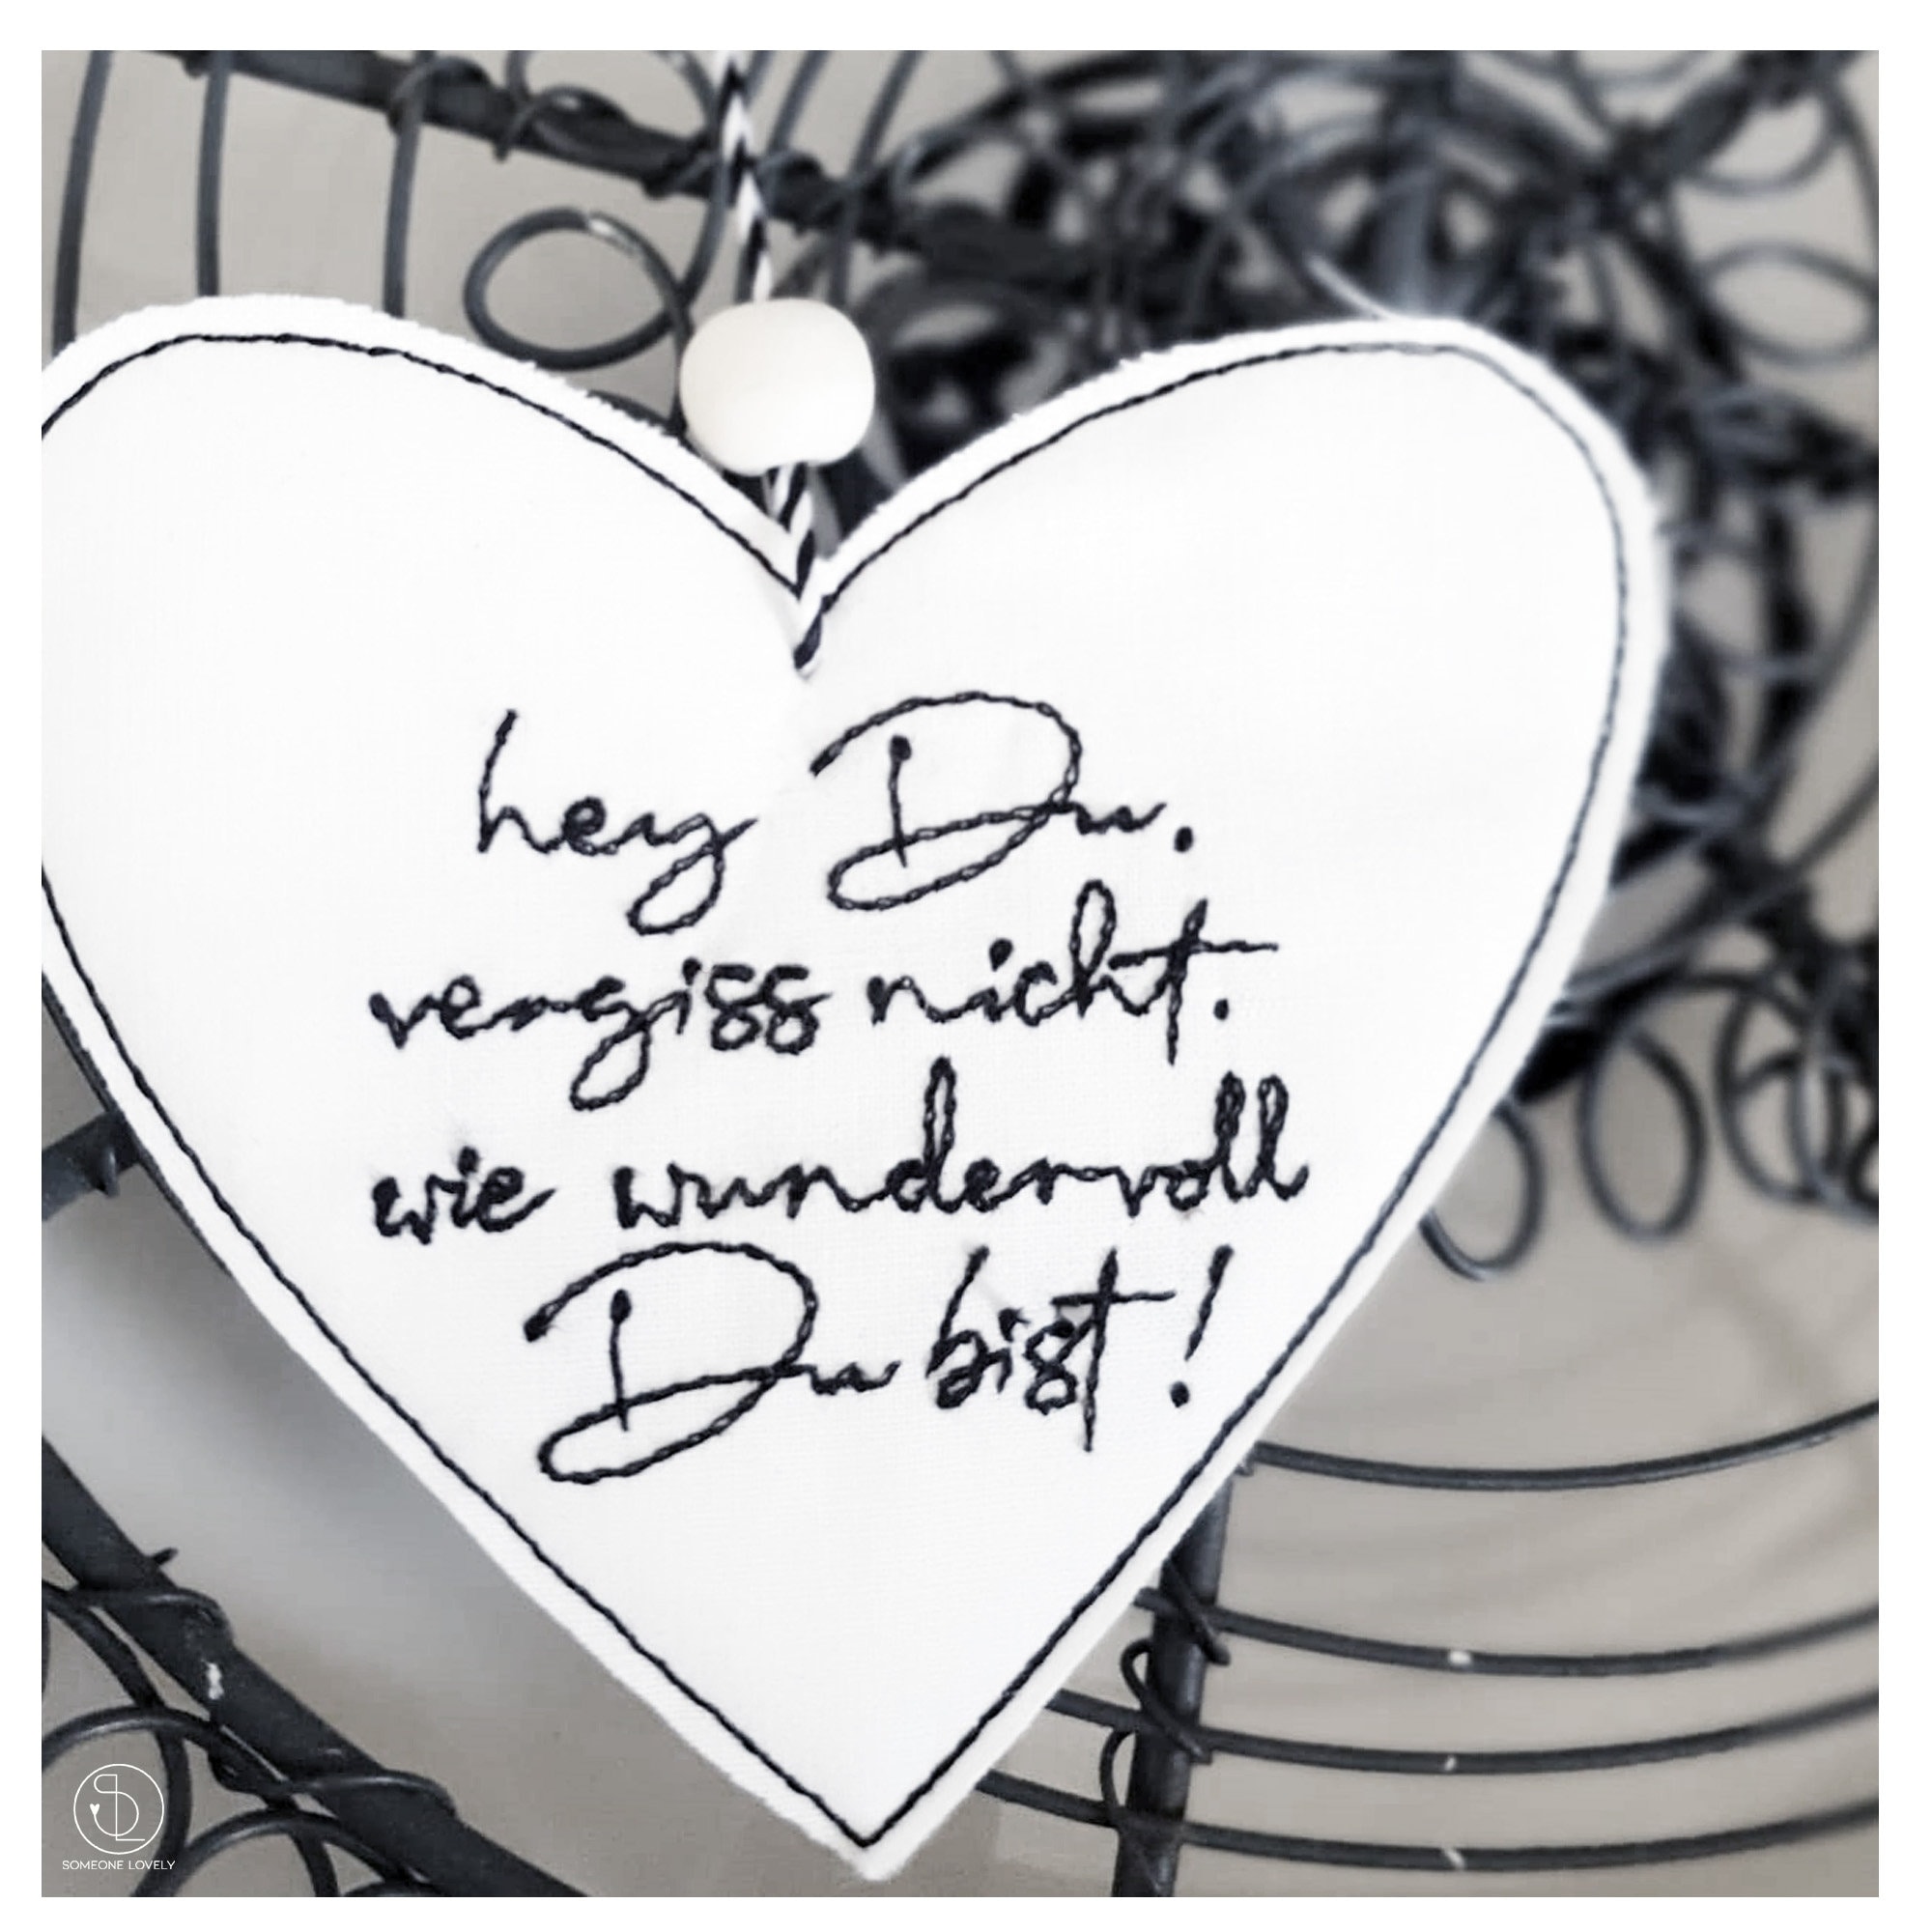 hey Du.
vergiss nicht.
wie wundervoll
Du bist!
SL
SOMEONE LOVELY